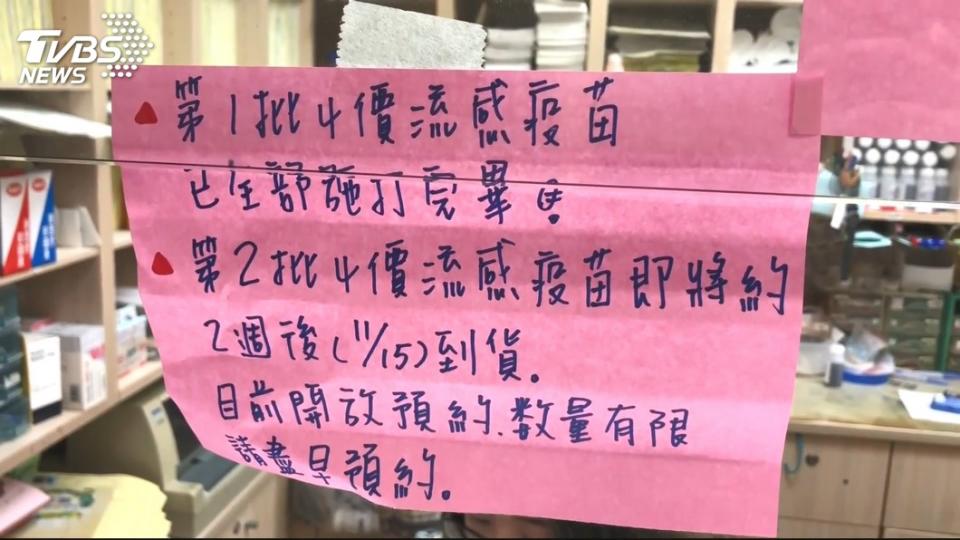 TVBS
NEWS
▲第1批4價流感疫苗
已全部施打完畢
▲第2批4價流感疫苗即將約
2週後(11/15)到貨。
目前開放預約.數量有限
請盡早預約。